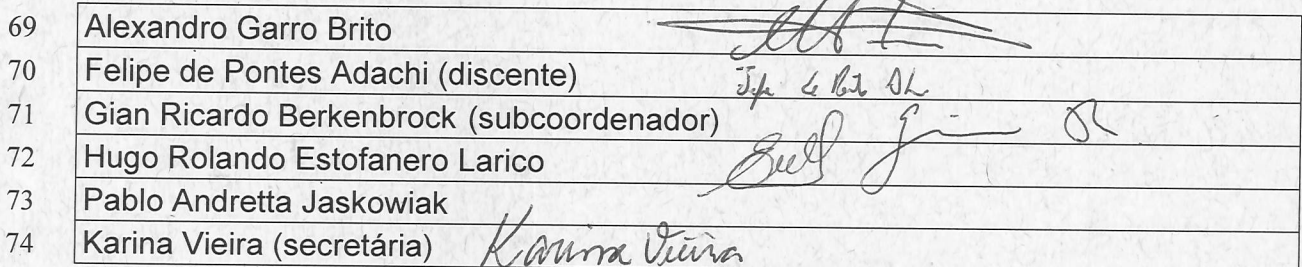 69 Alexandro Garro Brito
70 Felipe de Pontes Adachi (discente)
71 Gian Ricardo Berkenbrock (subcoordenador)
72 Hugo Rolando Estofanero Larico
73 Pablo Andretta Jaskowiak
74 Karina Vieira (secretária) Karina Vieira